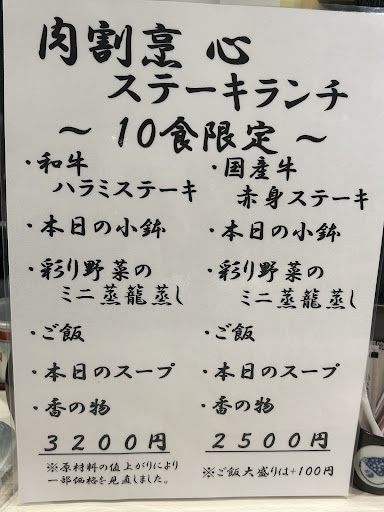 肉割烹 心
ステーキランチ
～ 10食限定 ～
・和牛
ハラミステーキ
・本日の小鉢
・彩り野菜の
ミニ蒸籠蒸し
・ご飯
・本日のスープ
・香の物
3200円
※原材料の値上がりにより
一部価格を見直しました。
・国産牛
赤身ステーキ
・本日の小鉢
・彩り野菜の
ミニ蒸籠蒸し
・ご飯
・本日のスープ
・香の物
2500円
※ご飯大盛りは+100円